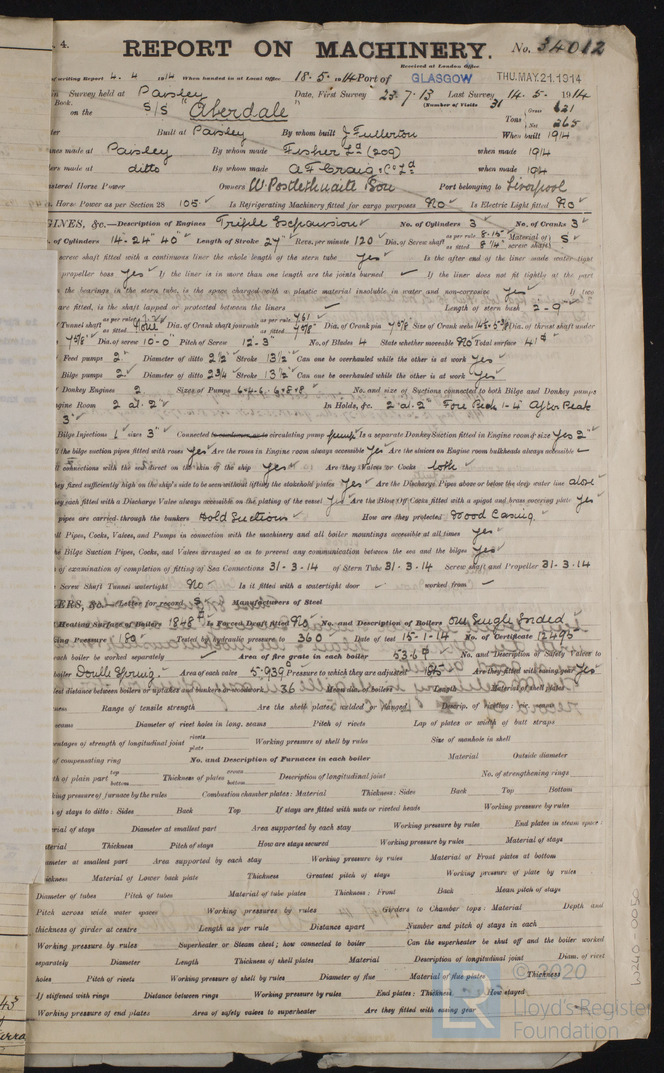 . 4.
REPORT ON MACHINERY. No. 34012
Received at London Office
of writing Report 4. 4 1914 When handed in at Local Office 18.5.1914 Port of GLASGOW THU. MAY. 21. 1914
in Survey held at Paisley Date, First Survey 23.7.13 Last Survey 14.5. 1914
Book. (Number of Visits 31
on the S/S "Aberdale" Tons Gross 621 Net 265
Built at Paisley By whom built J Fullerton When built 1914
ines made at Paisley By whom made Fisher Ld (209) when made 1914
ers made at ditto By whom made A F Craig & Co Ld when made 1914
stered Horse Power Owners W. Postlethwaite Son Port belonging to Liverpool
Horse Power as per Section 28 105 Is Refrigerating Machinery fitted for cargo purposes No Is Electric Light fitted No
GINES, &c.—Description of Engines Triple Expansion No. of Cylinders 3 No. of Cranks 3
of Cylinders 14-24 40" Length of Stroke 27" Revs. per minute 120 Dia. of Screw shaft as per rule 8.15" as fitted 8 1/4" Material of screw shaft S
screw shaft fitted with a continuous liner the whole length of the stern tube Yes Is the after end of the liner made water tight
propeller boss Yes If the liner is in more than one length are the joints burned If the liner does not fit tightly at the part
the bearings in the stern tube, is the space charged with a plastic material insoluble in water and non-corrosive Yes If two
are fitted, is the shaft lapped or protected between the liners Length of stern bush 2-9"
Tunnel shaft as per rule as fitted Dia. of Crank shaft journals as per rule 7.61 as fitted 7 5/8" Dia. of Crank pin 7 5/8 Size of Crank webs Dia. of thrust shaft under
7 5/8" Dia. of screw 10-0" Pitch of Screw 12-3" No. of Blades 4 State whether moveable No Total surface 41
Feed pumps 2 Diameter of ditto 2 1/2 Stroke 13 1/2 Can one be overhauled while the other is at work Yes
Bilge pumps 2 Diameter of ditto 2 3/4 Stroke 13 1/2 Can one be overhauled while the other is at work Yes
Donkey Engines 2 Sizes of Pumps No. and size of Suctions connected to both Bilge and Donkey pumps
gine Room 2 at 2" In Holds, &c. 2 at 2" Fore Peak 1-4" After Peak
3"
Bilge Injections 1 sizes 3" Connected to condenser or to circulating pump pump Is a separate Donkey Suction fitted in Engine room & size Yes 2"
ll the bilge suction pipes fitted with roses Yes Are the roses in Engine room always accessible Yes Are the sluices on Engine room bulkheads always accessible
ll connections with the sea direct on the skin of the ship Yes Are they Valves or Cocks both
they fixed sufficiently high on the ship's side to be seen without lifting the stokehold plates Yes Are the Discharge Pipes above or below the deep water line above
they each fitted with a Discharge Valve always accessible on the plating of the vessel Yes Are the Blow Off Cocks fitted with a spigot and brass covering plate Yes
pipes are carried through the bunkers Hold Suctions How are they protected Wood Casing
ll Pipes, Cocks, Valves, and Pumps in connection with the machinery and all boiler mountings accessible at all times Yes
he Bilge Suction Pipes, Cocks, and Valves arranged so as to prevent any communication between the sea and the bilges Yes
of examination of completion of fitting of Sea Connections 31-3-14 of Stern Tube 31.3.14 Screw shaft and Propeller 31-3-14
Screw Shaft Tunnel watertight No Is it fitted with a watertight door worked from
ERS, &c.—(Letter for record S) Manufacturers of Steel
Heating Surface of Boilers 1848 Is Forced Draft fitted No No. and Description of Boilers One Single Ended
king Pressure 180 Tested by hydraulic pressure to 360 Date of test 15-1-14 No. of Certificate 12495
each boiler be worked separately Area of fire grate in each boiler 53.6 No. and Description of Safety Valves to
boiler Double Spring Area of each valve 5.939 Pressure to which they are adjusted 185 Are they fitted with easing gear Yes
lest distance between boilers or uptakes and bunkers or woodwork 36 Mean dia. of boilers Length Material of shell plates
ness Range of tensile strength Are the shell plates welded or flanged Descrip. of riveting: cir. seams
seams Diameter of rivet holes in long. seams Pitch of rivets Lap of plates or width of butt straps
centages of strength of longitudinal joint rivets plate Working pressure of shell by rules Size of manhole in shell
of compensating ring No. and Description of Furnaces in each boiler Material Outside diameter
th of plain part top bottom Thickness of plates crown bottom Description of longitudinal joint No. of strengthening rings
king pressure of furnace by the rules Combustion chamber plates: Material Thickness: Sides Back Top Bottom
of stays to ditto: Sides Back Top If stays are fitted with nuts or riveted heads Working pressure by rules
rial of stays Diameter at smallest part Area supported by each stay Working pressure by rules End plates in steam space:
terial Thickness Pitch of stays How are stays secured Working pressure by rules Material of stays
ameter at smallest part Area supported by each stay Working pressure by rules Material of Front plates at bottom
ickness Material of Lower back plate Thickness Greatest pitch of stays Working pressure of plate by rules
Diameter of tubes Pitch of tubes Material of tube plates Thickness: Front Back Mean pitch of stays
Pitch across wide water spaces Working pressures by rules Girders to Chamber tops: Material Depth and
thickness of girder at centre Length as per rule Distance apart Number and pitch of stays in each
Working pressure by rules Superheater or Steam chest; how connected to boiler Can the superheater be shut off and the boiler worked
separately Diameter Length Thickness of shell plates Material Description of longitudinal joint Diam. of rivet
holes Pitch of rivets Working pressure of shell by rules Diameter of flue Material of flue plates Thickness
If stiffened with rings Distance between rings Working pressure by rules End plates: Thickness How stayed
Working pressure of end plates Area of safety valves to superheater Are they fitted with easing gear
W240-0050
© 2020
LR
Lloyd's Register
Foundation